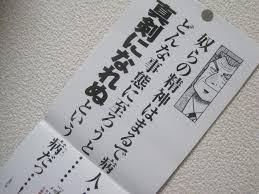 奴らの精神はまるで病人
どんな事態に至ろうと
真剣になれぬ
という
……………
病だっ…！